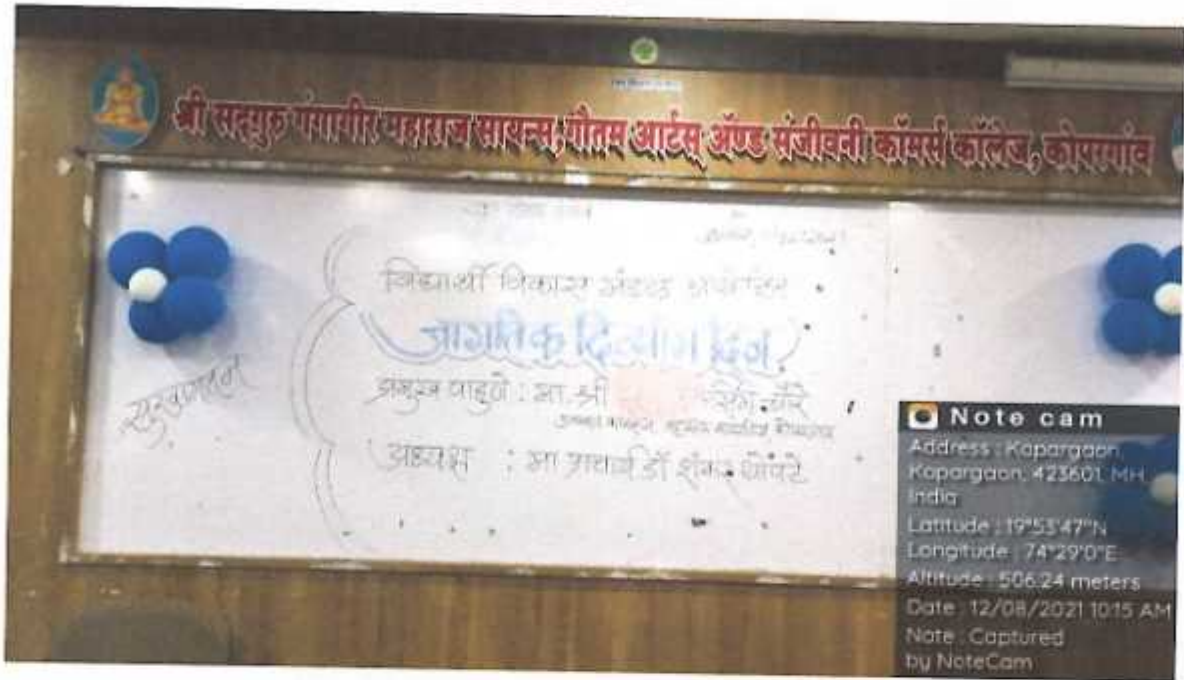 श्री सद्‌गुरु गंगागीर महाराज सायन्स, गौतम आर्टस् ॲण्ड संजीवनी कॉमर्स कॉलेज, कोपरगांव
विद्यार्थी विकास मंडळ
जागतिक दिव्यांग दिन
सुस्वागतम
प्रमुख पाहुणे : मा. श्री
अध्यक्ष : मा प्राचार्य डॉ शंकर थोपटे
Note cam
Address : Kopargaon,
Kopargaon, 423601, MH,
India
Latitude : 19°53'47"N
Longitude : 74°29'0"E
Altitude : 506.24 meters
Date : 12/08/2021 10:15 AM
Note : Captured
by NoteCam